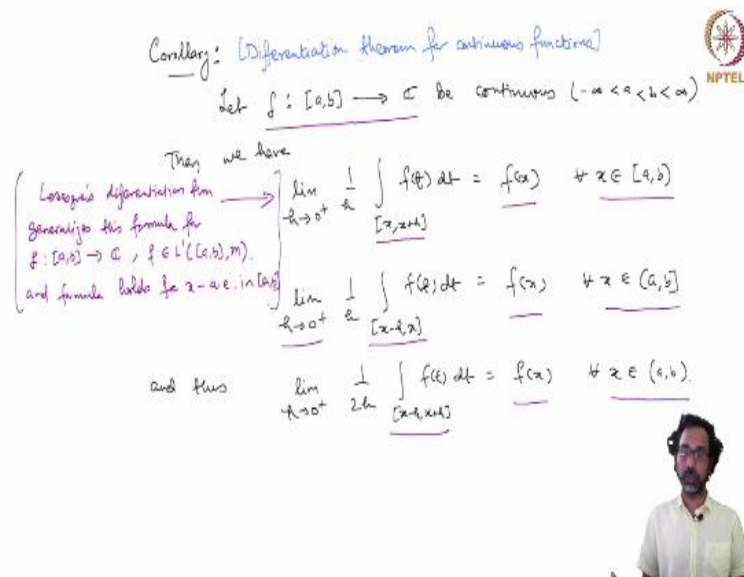 Corollary: [Differentiation theorem for continuous functions]
NPTEL
Let f : [a,b] → ℂ be continuous (-∞ < a < b < ∞)
Then we have
lim h→0⁺ 1/h ∫[x,x+h] f(t) dt = f(x) ∀ x ∈ [a,b)
Lebesgue's differentiation thm →
generalizes this formula for
f : [a,b] → ℂ, f ∈ L¹([a,b), m).
and formula holds for x-a.e. in [a,b]
lim h→0⁺ 1/h ∫[x-h,x] f(t) dt = f(x) ∀ x ∈ (a,b]
and thus lim h→0⁺ 1/2h ∫[x-h,x+h] f(t) dt = f(x) ∀ x ∈ (a,b).